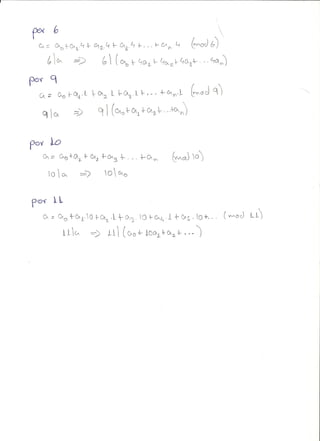 por 6
a = a₀+a₁4+a₂4+a₃4+...+aₙ4 (mod 6)
6|a => 6|(a₀+4a₁+4a₂+4a₃+...4aₙ)
por 9
a = a₀+a₁.1+a₂.1+a₃.1+...+aₙ.1 (mod 9)
9|a => 9|(a₀+a₁+a₂+...+aₙ)
por 10
a = a₀+a₁+a₂+a₃+...+aₙ (mod 10)
10|a => 10|a₀
por 11
a = a₀+a₁.10+a₂.1+a₃.10+a₄.1+a₅.10+... (mod 11)
11|a => 11|(a₀+10a₁+a₂+...)